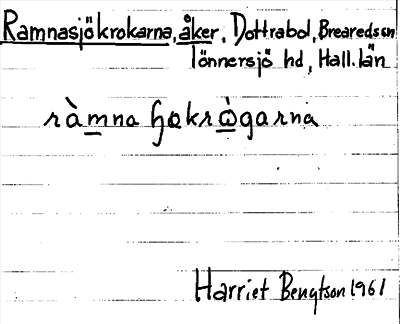 Ramnasjökrokarna, åker, Dottrabol, Breareds sn
Tönnersjö hd, Hall. län
ràmna ɧøkrògarna
Harriet Bengtson 1961